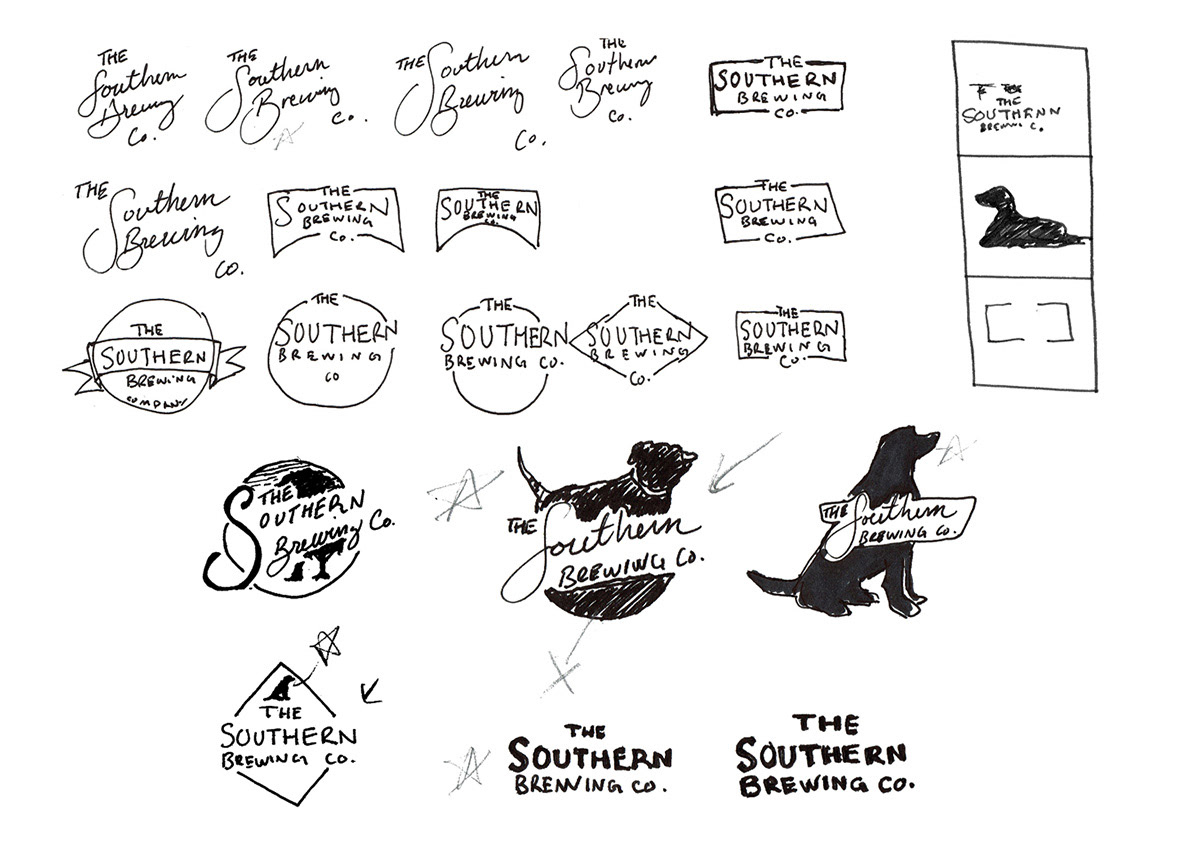 THE
Southern
Brewing
Co.
THE
Southern
Brewing
Co.
THE Southern
Brewing
Co.
THE
Southern
Brewing
Co.
THE
SOUTHERN
BREWING
CO.
THE
THE
Southern
Brewing
Co.
THE
SOUTHERN
BREWING
CO.
THE
SOUTHERN
BREWING
CO.
THE
SOUTHERN
BREWING
CO.
THE
SOUTHERN
BREWING
COMPANY
THE
SOUTHERN
BREWING
CO
THE
SOUTHERN
BREWING CO.
THE
SOUTHERN
BREWING
CO.
THE
SOUTHERN
BREWING
CO.
THE
SOUTHERN
Brewing Co.
THE
Southern
BREWING CO.
THE Southern
BREWING CO.
THE
SOUTHERN
BREWING CO.
THE
SOUTHERN
BREWING CO.
THE
SOUTHERN
BREWING CO.